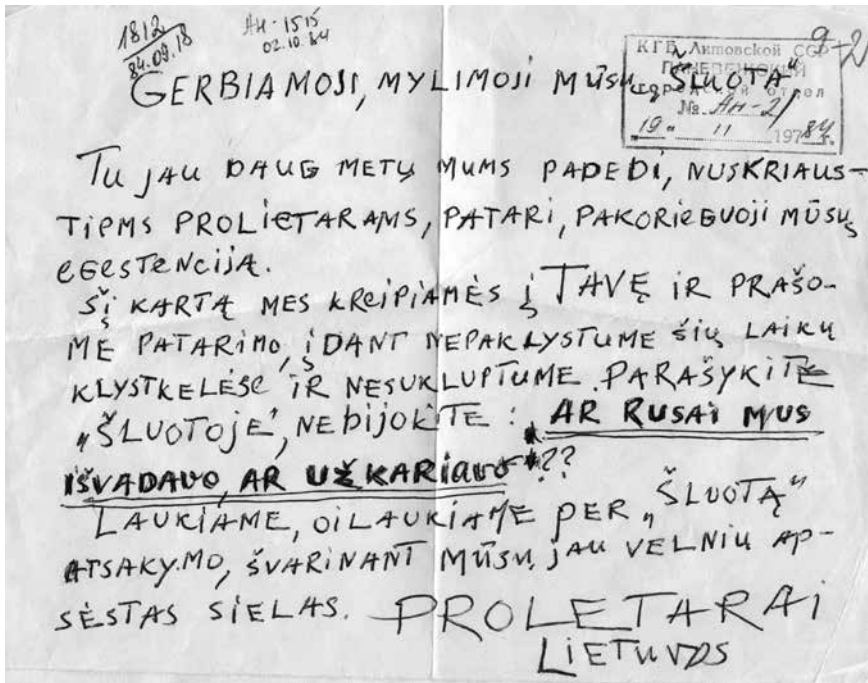 1812
84.09.18
АН-1515
02.10.84
9+2
КГБ Литовской ССР
ПАНЕВЕЖСКИЙ
городской отдел
№ АН-2/
"19" 11 1984 г.
GERBIAMOJI, MYLIMOJI MŪSŲ „ŠLUOTA“
TU JAU DAUG METŲ MUMS PADEDI, NUSKRIAUS-
TIEMS PROLIETARAMS, PATARI, PAKORIEGUOJI MŪSŲ
EGESTENCIJĄ.
ŠĮ KARTĄ MES KREIPIAMĖS Į TAVĘ IR PRAŠO-
ME PATARIMO, IDANT NEPAKLYSTUME ŠIŲ LAIKŲ
KLYSTKELĖSE IR NESUKLUPTUME. PARAŠYKITE
„ŠLUOTOJE“, NEBIJOKITE: AR RUSAI MUS
IŠVADAVO, AR UŽKARIAVO??
LAUKIAME, OI LAUKIAME PER „ŠLUOTĄ“
ATSAKYMO, ŠVARINANT MŪSŲ JAU VELNIŲ AP-
SĖSTAS SIELAS. PROLETARAI
LIETUVOS